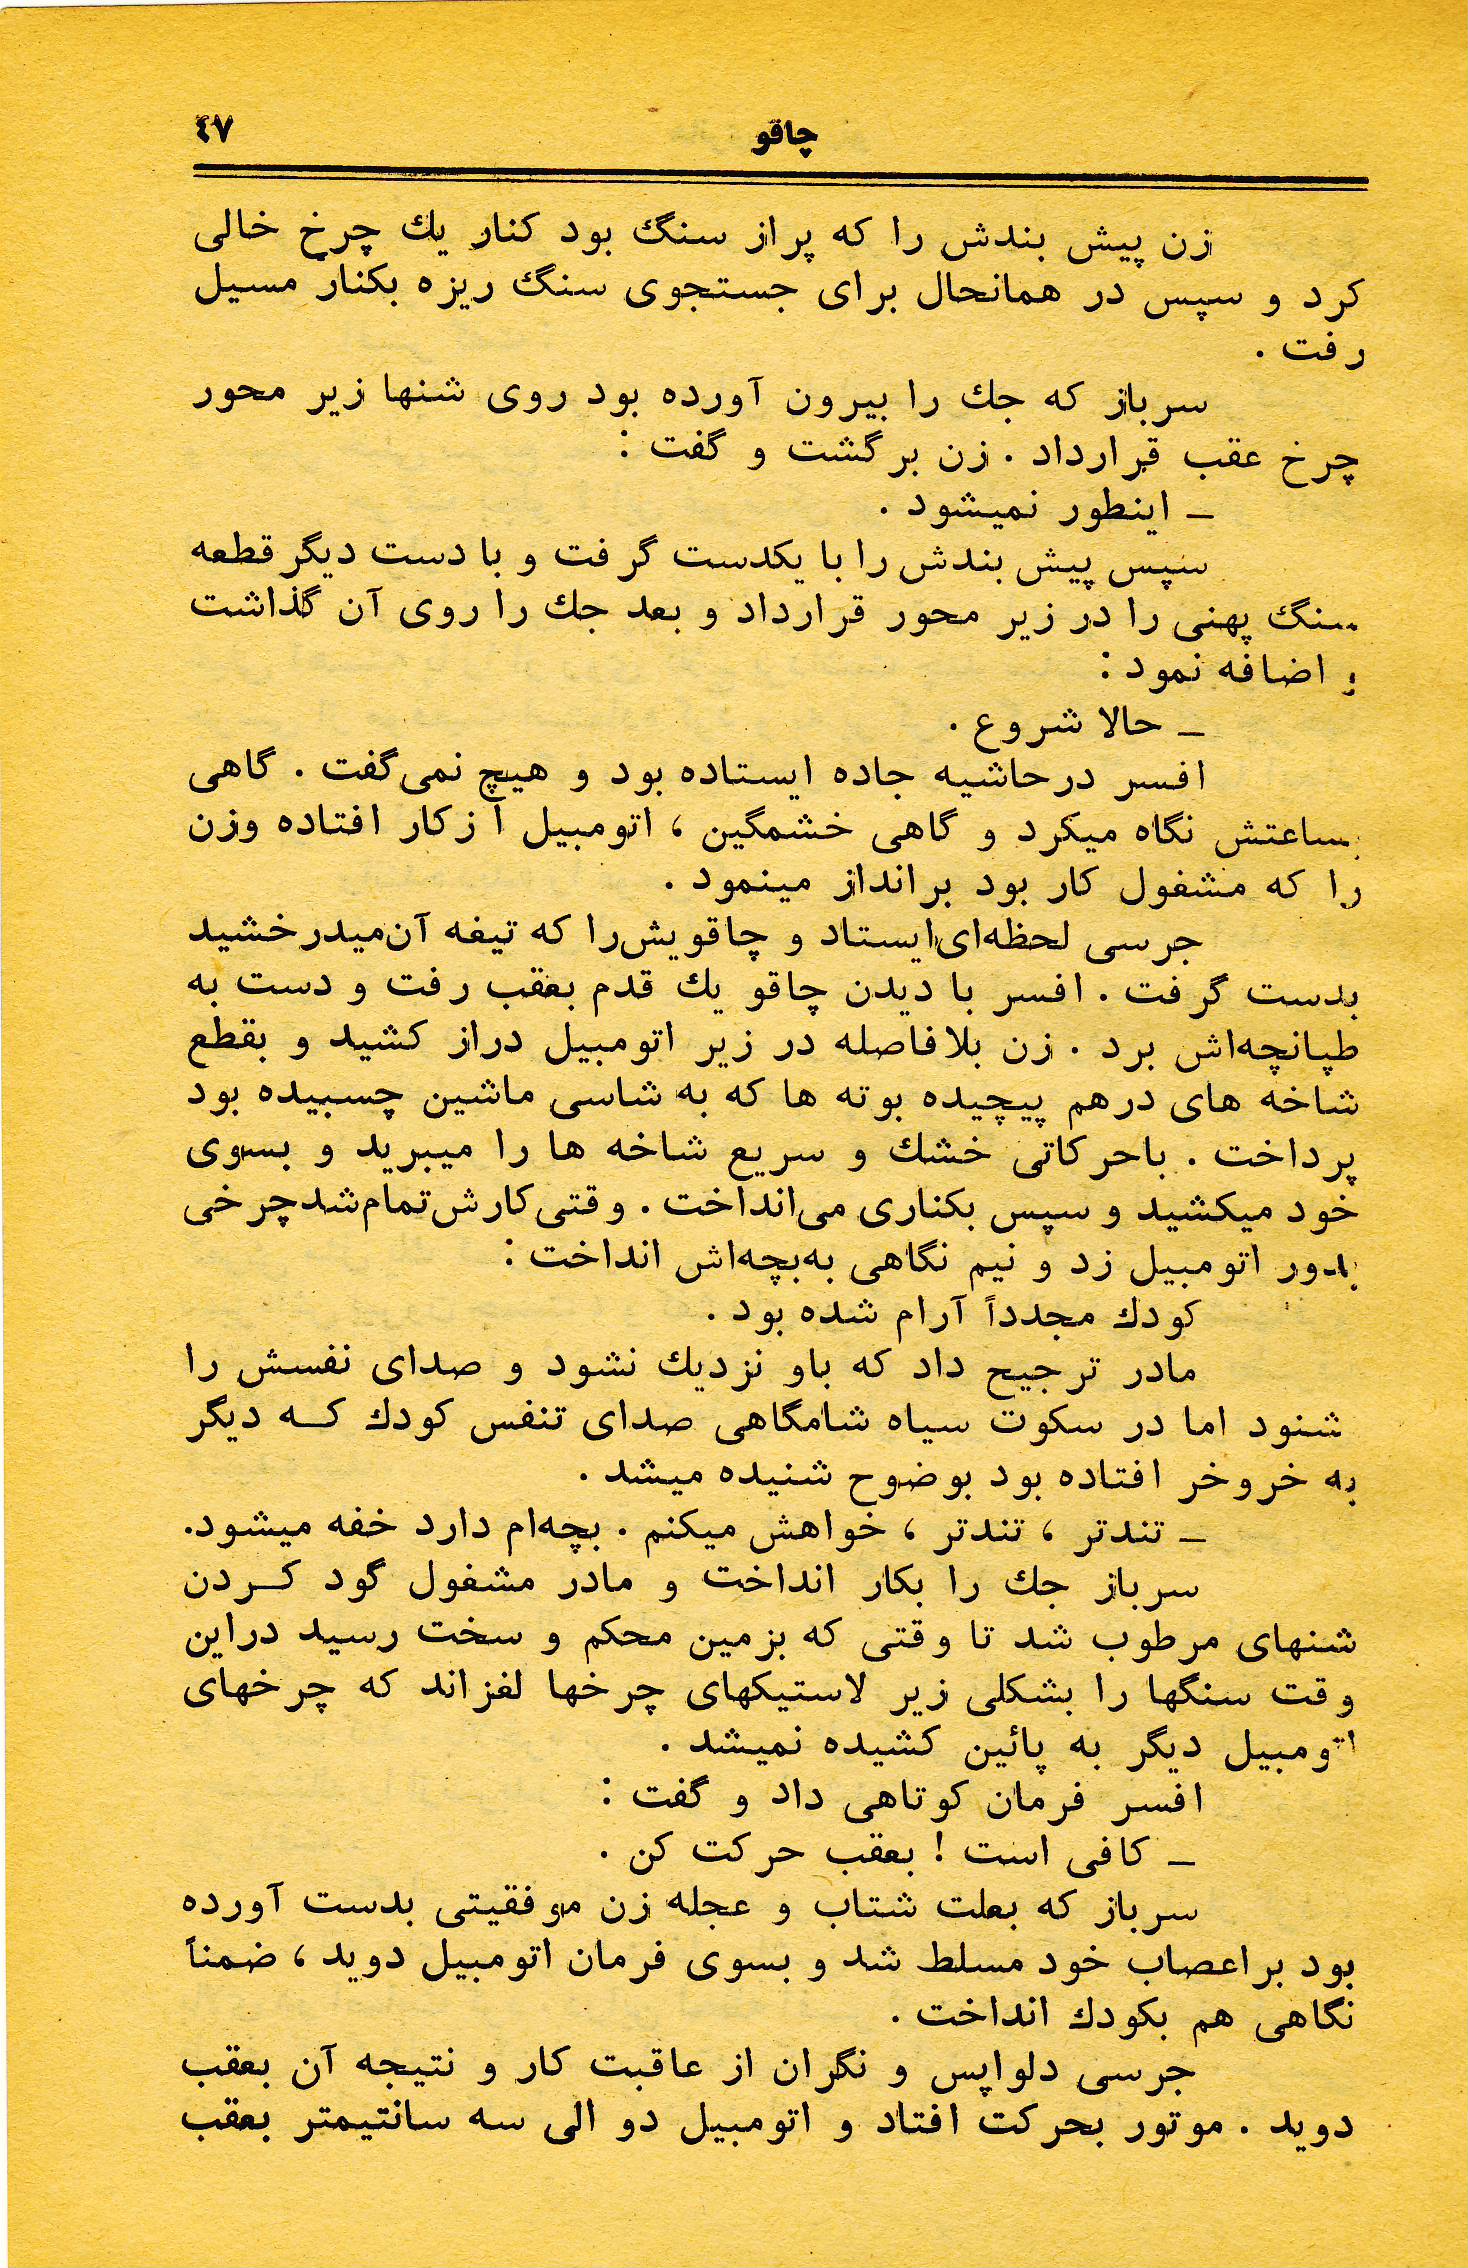 چاقو ٤٧
زن پیش بندش را که پراز سنگ بود کنار یك چرخ خالی
کرد و سپس در همانحال برای جستجوی سنگ ریزه بکنار مسیل
رفت .
سرباز که جك را بیرون آورده بود روی شنها زیر محور
چرخ عقب قرارداد . زن برگشت و گفت :
ــ اینطور نمیشود .
سپس پیش بندش را با یکدست گرفت و با دست دیگر قطعه
سنگ پهنی را در زیر محور قرارداد و بعد جك را روی آن گذاشت
و اضافه نمود :
ــ حالا شروع .
افسر درحاشیه جاده ایستاده بود و هیچ نمی‌گفت . گاهی
بساعتش نگاه میکرد و گاهی خشمگین ، اتومبیل از کار افتاده وزن
را که مشغول کار بود برانداز مینمود .
جرسی لحظه‌ای ایستاد و چاقویش را که تیغه آن میدرخشید
بدست گرفت . افسر با دیدن چاقو یك قدم بعقب رفت و دست به
طپانچه‌اش برد . زن بلافاصله در زیر اتومبیل دراز کشید و بقطع
شاخه های درهم پیچیده بوته ها که به شاسی ماشین چسبیده بود
پرداخت . باحرکاتی خشك و سریع شاخه ها را میبرید و بسوی
خود میکشید و سپس بکناری می‌انداخت . وقتی کارش تمام شد چرخی
بدور اتومبیل زد و نیم نگاهی به بچه‌اش انداخت :
کودك مجدداً آرام شده بود .
مادر ترجیح داد که باو نزدیك نشود و صدای نفسش را
شنود اما در سکوت سیاه شامگاهی صدای تنفس کودك کـه دیگر
به خروخر افتاده بود بوضوح شنیده میشد .
ــ تندتر ، تندتر ، خواهش میکنم . بچه‌ام دارد خفه میشود.
سرباز جك را بکار انداخت و مادر مشغول گود کـردن
شنهای مرطوب شد تا وقتی که بزمین محکم و سخت رسید دراین
وقت سنگها را بشکلی زیر لاستیکهای چرخها لغزاند که چرخهای
اتومبیل دیگر به پائین کشیده نمیشد .
افسر فرمان کوتاهی داد و گفت :
ــ کافی است ! بعقب حرکت کن .
سرباز که بعلت شتاب و عجله زن موفقیتی بدست آورده
بود براعصاب خود مسلط شد و بسوی فرمان اتومبیل دوید ، ضمناً
نگاهی هم بکودك انداخت .
جرسی دلواپس و نگران از عاقبت کار و نتیجه آن بعقب
دوید . موتور بحرکت افتاد و اتومبیل دو الی سه سانتیمتر بعقب